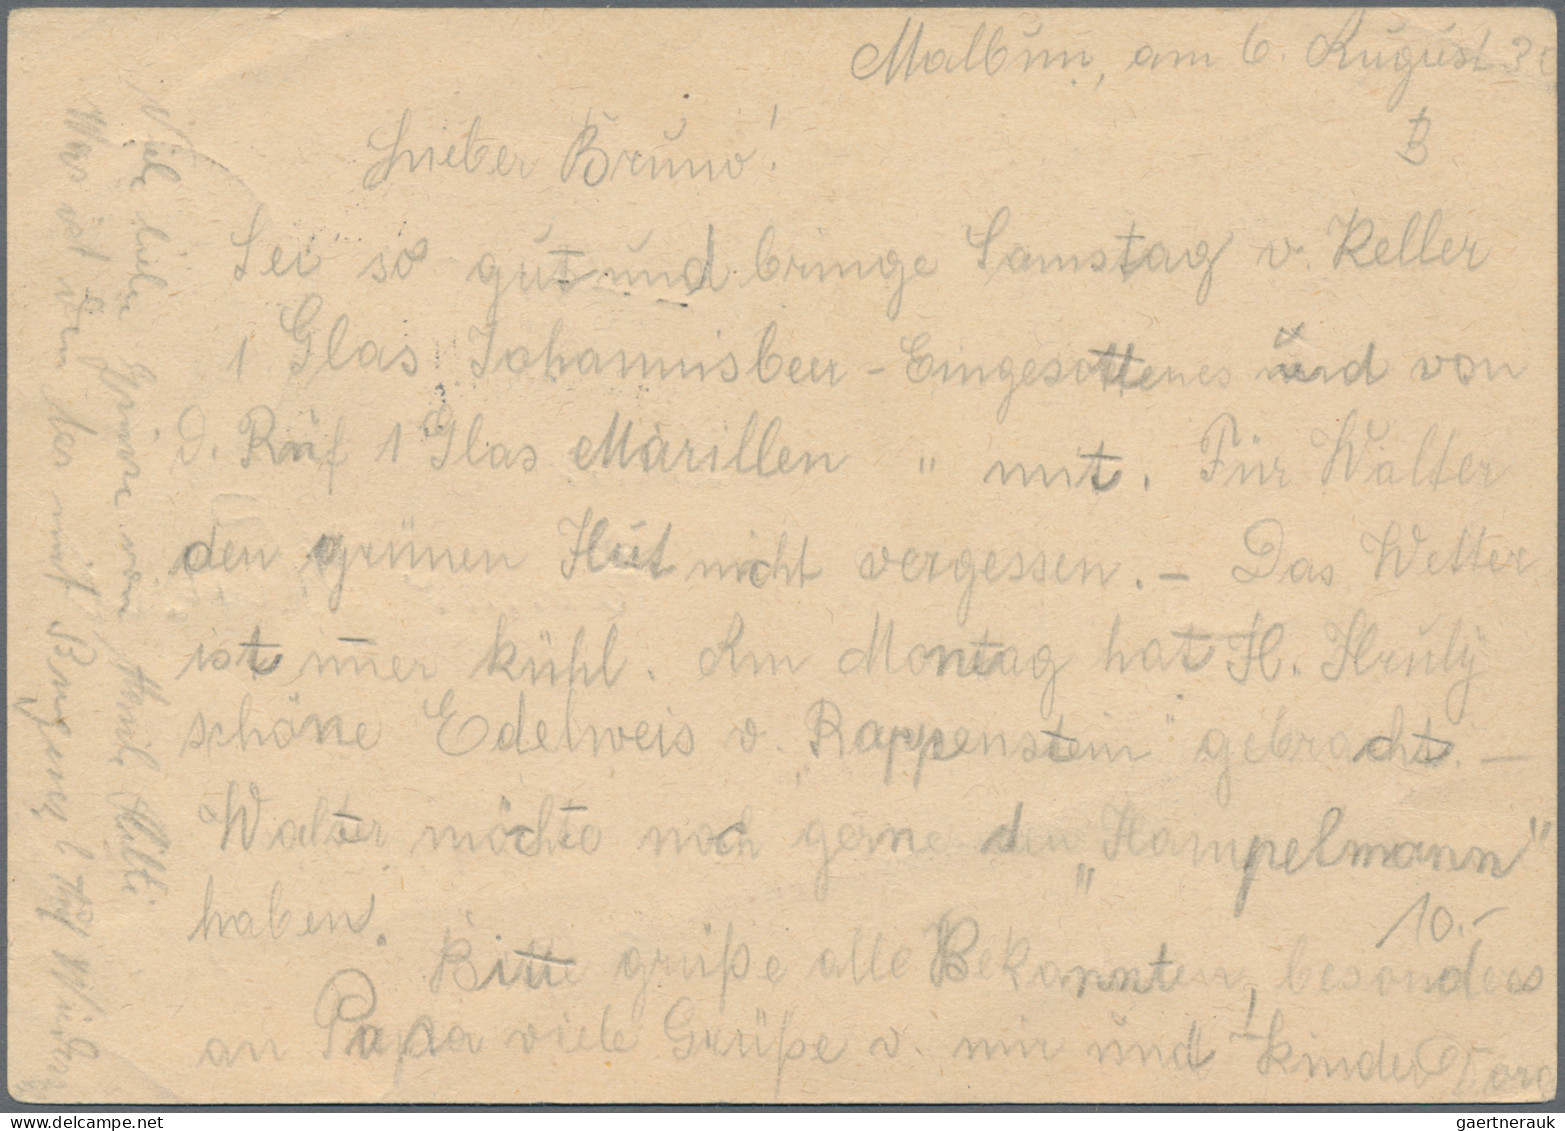 Malbun, am 6. August 3
B
Lieber Bruno!
Sei so gut und bringe Samstag v. Keller
1 Glas Johannisbeer-Eingesottenes und von
D. Ruf 1 Glas Marillen " mit. Für Walter
den grünen Hut nicht vergessen. – Das Wetter
ist im̄er kühl. Am Montag hat H. Hruby
schöne Edelweis v. „Rappenstein" gebracht. –
Walter möchte noch gerne den „Hampelmann"
haben.
10.–
Bitte grüße alle Bekannten, besonders
an Papa viele Grüße v. mir und Kinder
Viele liebe Grüsse von Familie
Was ist den los mit
gaertnerauk / www.delcampe.net